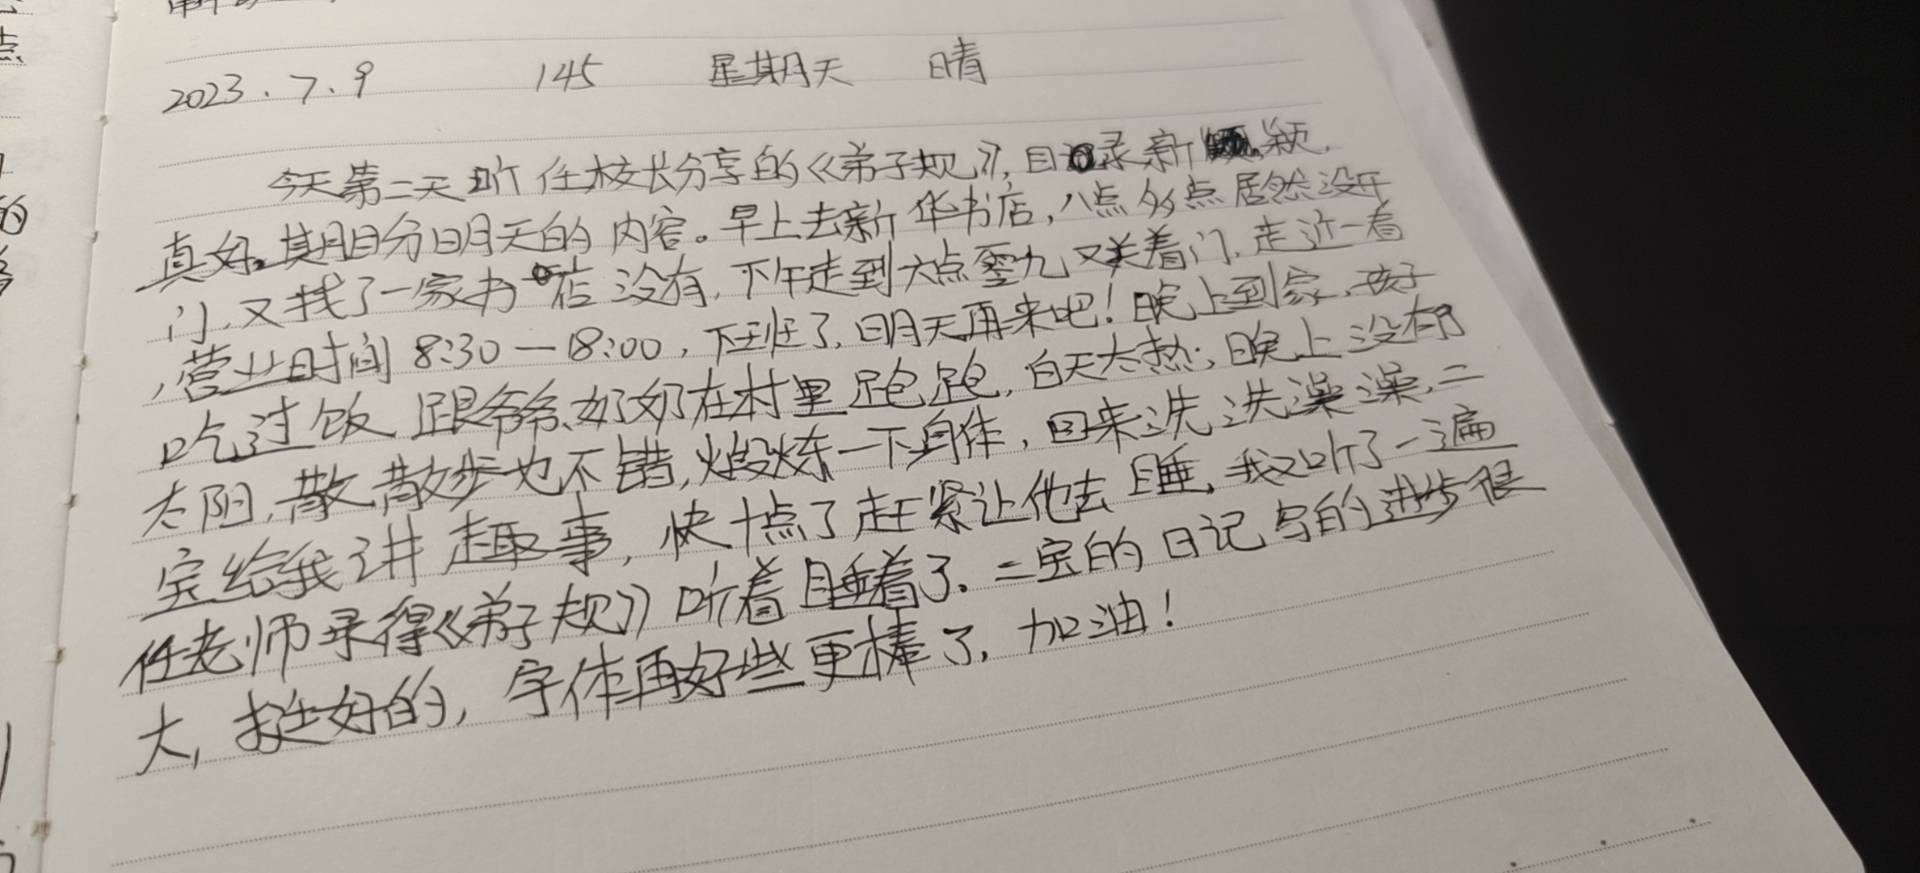 2023.7.9 145 星期天 晴
今天第二天听任校长分享的《弟子规》,目录新颖.
真好。期盼明天的内容。早上去新华书店,八点多点居然没开
门,又找了一家书店没有,下午走到六点零九又关着门,走近一看
,营业时间8:30—18:00,下班了,明天再来吧!晚上到家,孩子
吃过饭跟爷爷、奶奶在村里跑跑,白天太热;晚上没有
太阳,散散步也不错,煅炼一下身体,回来洗洗澡澡,二
宝给我讲趣事,快十点了赶紧让他去睡,我又听了一遍
任老师录得《弟子规》听着睡着了.二宝的日记写的进步很
大,挺好的,字体再好些更棒了,加油!